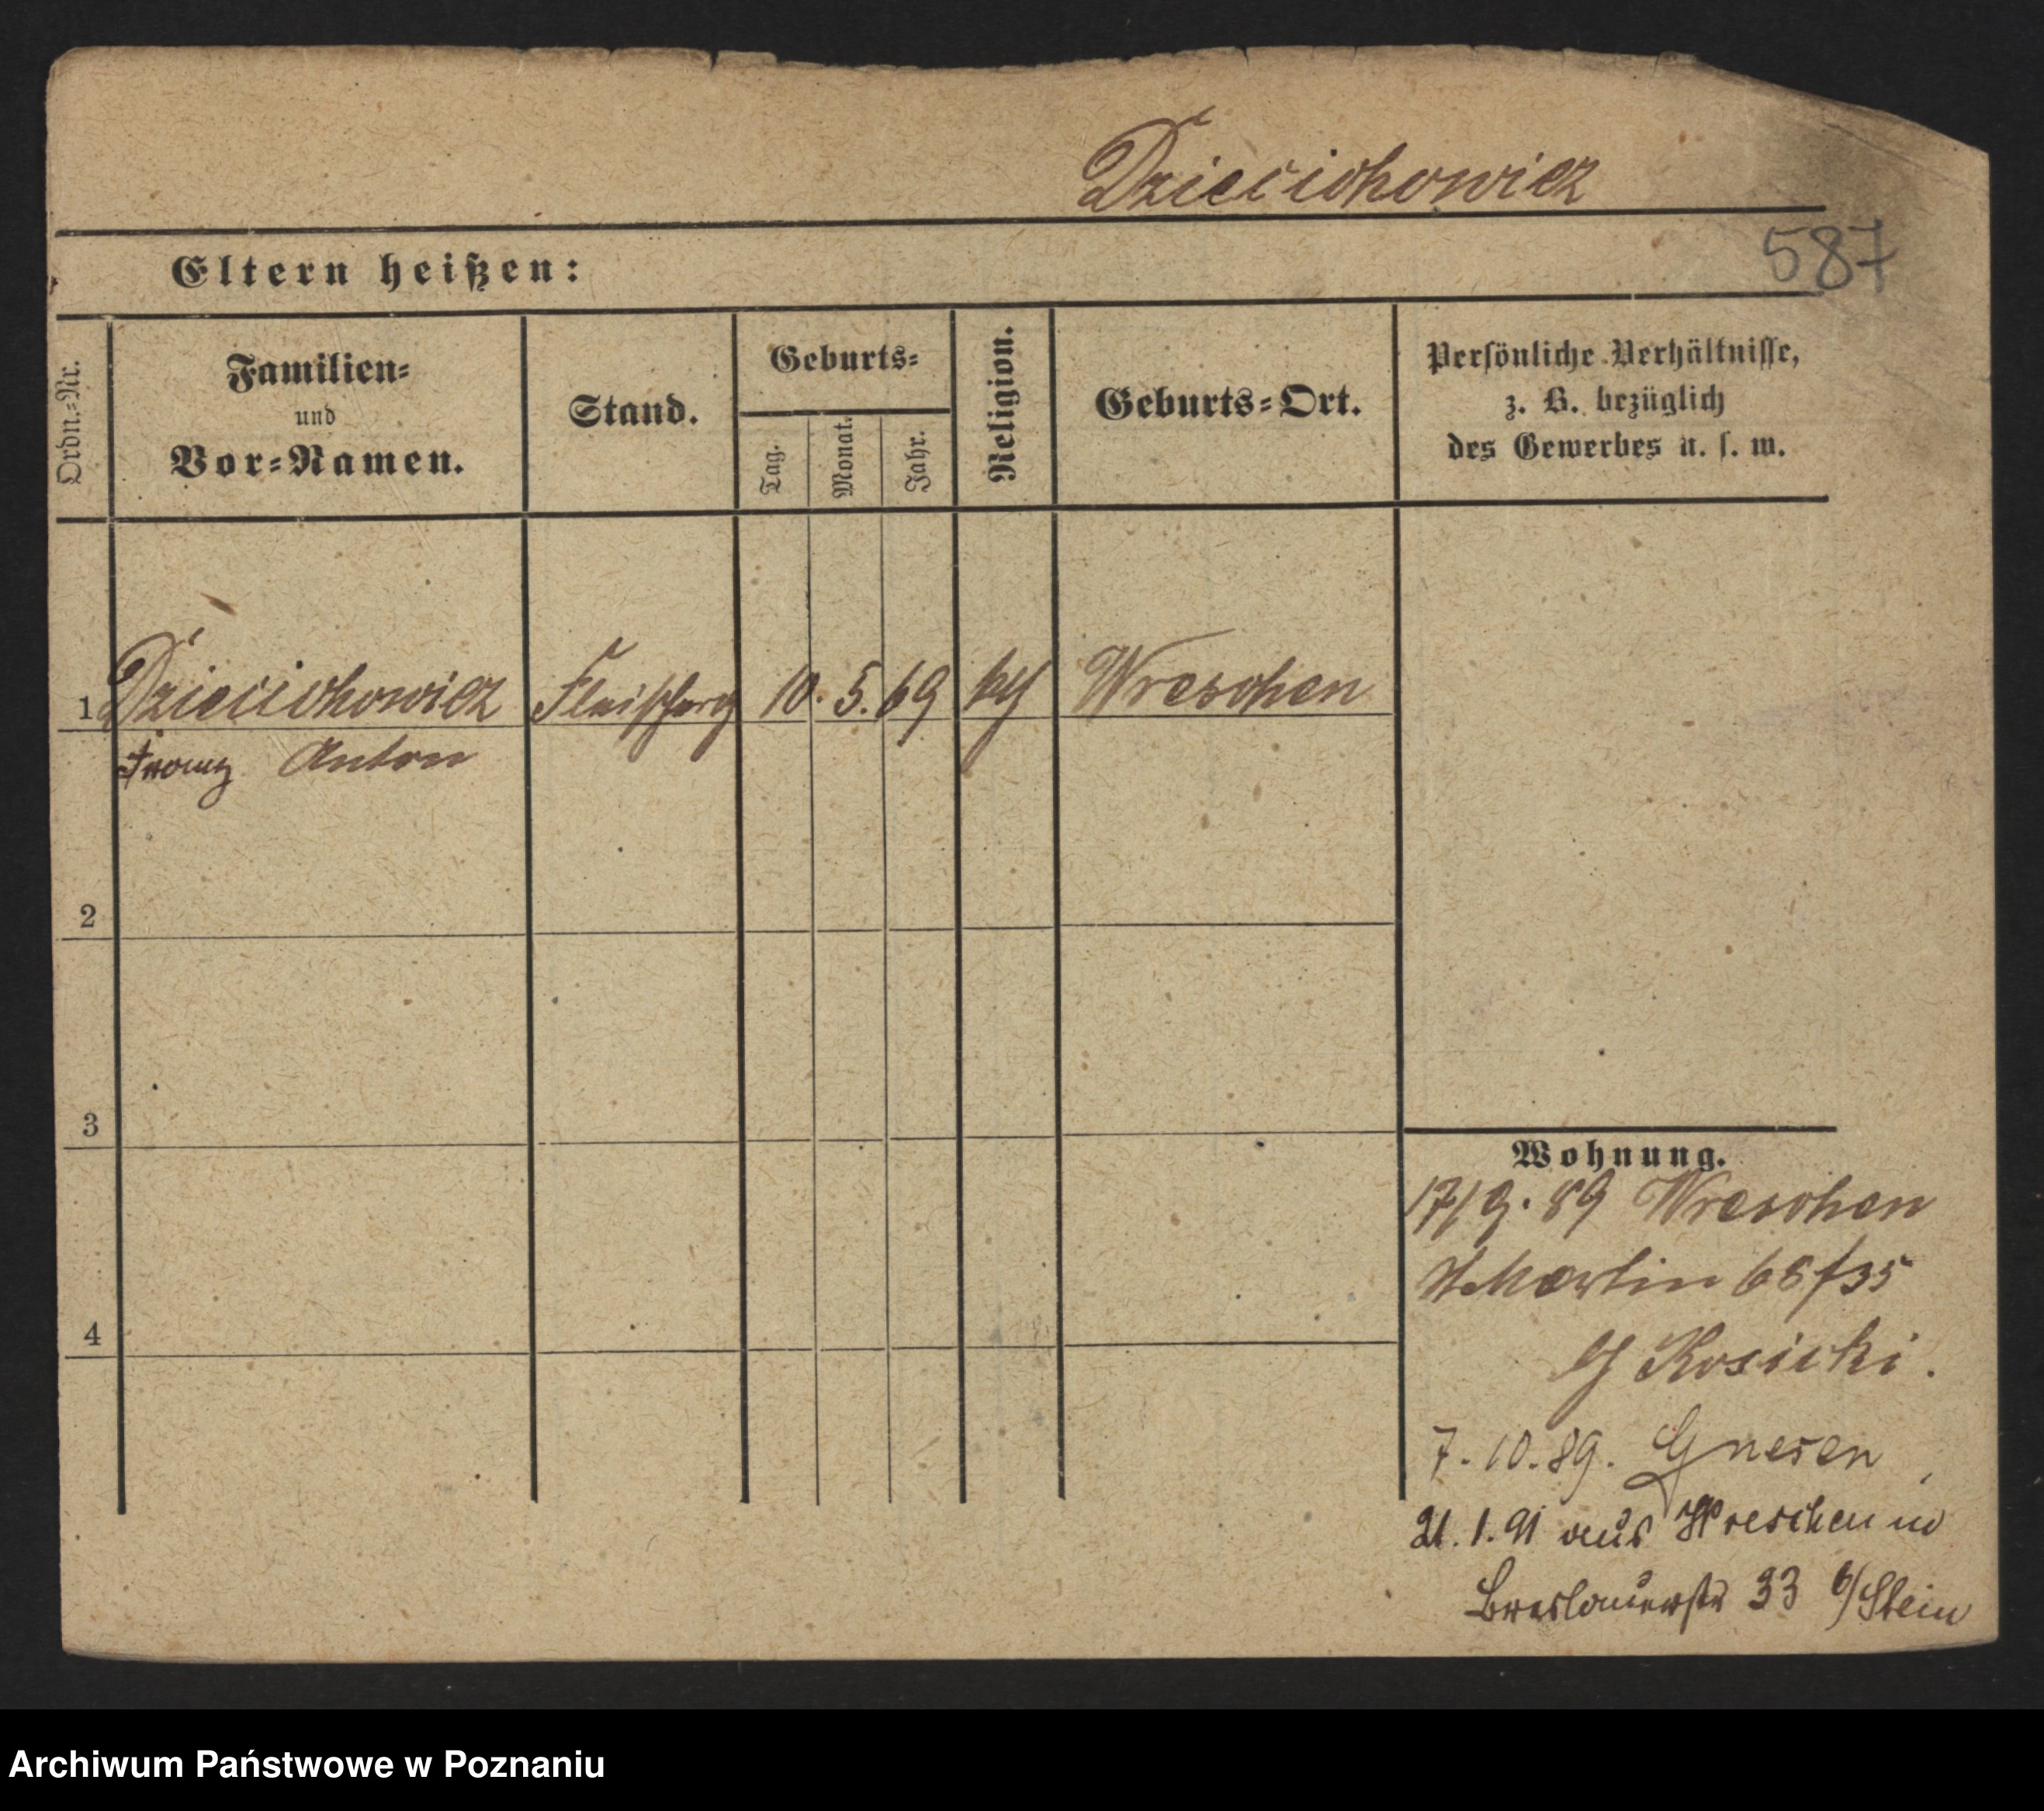 Dziecichowicz
587
Eltern heißen:
Ordn.-Nr.
Familien-
und
Vor-Namen.
Stand.
Geburts-
Tag.
Monat.
Jahr.
Religion.
Geburts-Ort.
Persönliche Verhältnisse,
z. B. bezüglich
des Gewerbes u. s. w.
1 Dzieciichowicz Fleischerg 10. 5. 69 kg Wreschen
Franz Anton
2
3
4
Wohnung.
17/9. 89 Wreschen
St Martin 68/35
Kosicki.
7. 10. 89. Gnesen
21. 1. 91 aus Wreschen in
Breslauerstr 33 b/Stein
Archiwum Państwowe w Poznaniu